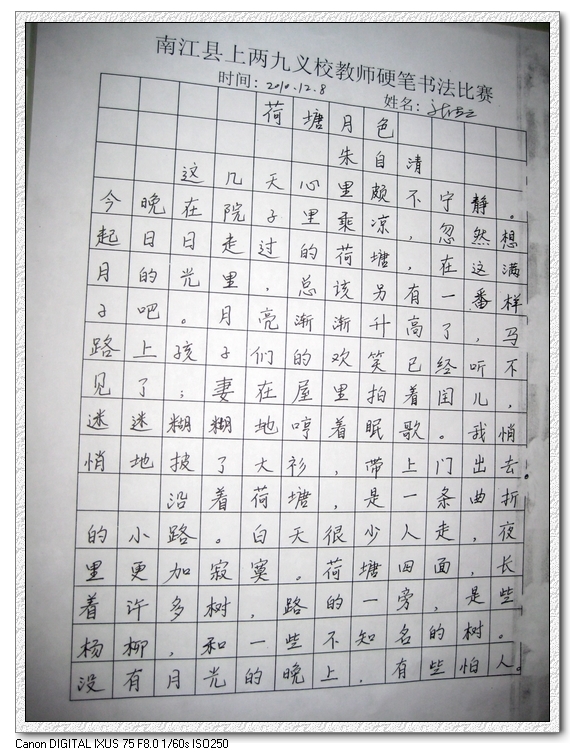 南江县上两九义校教师硬笔书法比赛
时间：2010.12.8 姓名：
荷塘月色
朱自清
这几天心里颇不宁静。
今晚在院子里乘凉，忽然想
起日日走过的荷塘，在这满
月的光里，总该另有一番样
子吧。月亮渐渐升高了，马
路上孩子们的欢笑已经听不
见了；妻在屋里拍着闰儿，
迷迷糊糊地哼着眠歌。我悄
悄地披了大衫，带上门出去。
沿着荷塘，是一条曲折
的小路。白天很少人走，夜
里更加寂寞。荷塘四面，长
着许多树，路的一旁，是些
杨柳，和一些不知名的树。
没有月光的晚上，有些怕人。
Canon DIGITAL IXUS 75 F8.0 1/60s ISO250